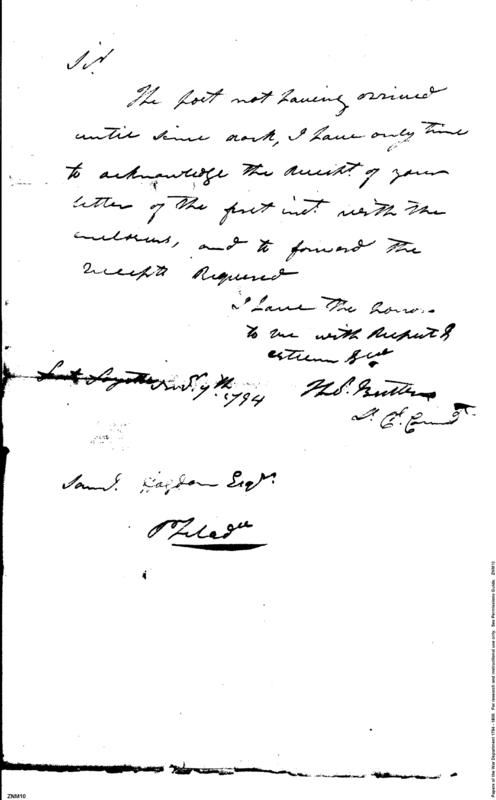 Sir
The post not having arrived
until since dark, I have only time
to acknowledge the receipt of your
letter of the first inst. with the
enclosures, and to forward the
receipts Required
I have the honor
to be with Respect &
esteem &ca
Fort Fayette Novr. 9th. 1794
Thos. Butler
Lt. Cl. Comdt.
Saml. Hogdon Esqr.
Philada
ZNM10
Papers of the War Department 1784-1800. For research and instructional use only. See Permissions Guide. ZNM10